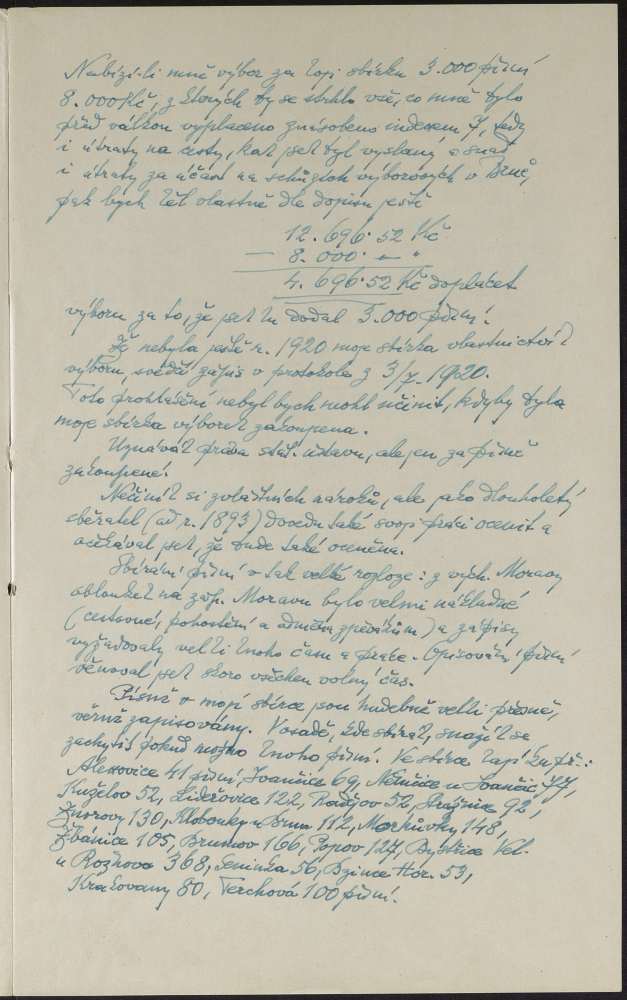 Nabízí-li mně výbor za moji sbírku 3.000 písní
8.000 Kč, z kterých by se strhlo vše, co mně bylo
před válkou vyplaceno znásobeno indexem 7, tedy
i útraty na cesty, kam jsem byl vyslaný a snad
i útraty za účast na schůzkách výborových v Brně,
pak bych měl vlastně dle dopisu ještě
12.696·52 Kč
— 8.000·— "
4.696·52 Kč doplácet
výboru za to, že jsem mu dodal 3.000 písní.
Že nebyla ještě r. 1920 moje sbírka vlastnictvím
výboru, svědčí zápis v protokole z 3/7. 1920.
Toto prohlášení nebyl bych mohl učinit, kdyby byla
moje sbírka výborem zakoupena.
Uznávám práva stát. ústavu, ale jen za písně
zakoupené.
Nečiním si zvláštních nároků, ale jako dlouholetý
sběratel (od r. 1893) dovedu také svoji práci ocenit a
očekával jsem, že bude také oceněna.
Sbírání písní v tak velké rozloze: z vých. Moravy
obloukem na záp. Moravu bylo velmi nákladné
(cestovné, pohoštění a odměna zpěvákům) a zápisy
vyžadovaly velmi mnoho času a práce. Opisování písní
věnoval jsem skoro všechen volný čas.
Písně v mojí sbírce jsou hudebně velmi přesně,
věrně zapisovány. V osadě, kde sbírám, snažil se
zachytit pokud možno mnoho písní. Ve sbírce mají na př.:
Alexovice 41 písní, Ivančice 69, Němčice u Ivančic 77,
Kuželov 52, Lideřovice 122, Radějov 52, Strážnice 92,
Znorovy 130, Klobouky u Brna 112, Morkůvky 148,
Žbánice 105, Brumov 166, Popov 127, Bystřice Vel.
u Rožnova 368, Seninka 56, Bzince Hor. 53,
Kralovany 80, Terchová 100 písní.